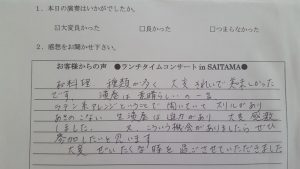 1．本日の演奏はいかがでしたか。
☑大変良かった　□良かった　□つまらなかった
2．感想をお聞かせ下さい。
お客様からの声　●ランチタイムコンサート in SAITAMA●
お料理　種類が多く　大変きれいで美味しかった
です。　演奏は素晴らしいの一言
ラテン系アレンジということで　聞いていて　スリルがあり
あきのこない　生演奏は迫力があり　大変感激
しました。　又、こういう機会がありましたら　ぜひ
参加したいと思います
大変　ぜいたくな時を過ごさせていただきました